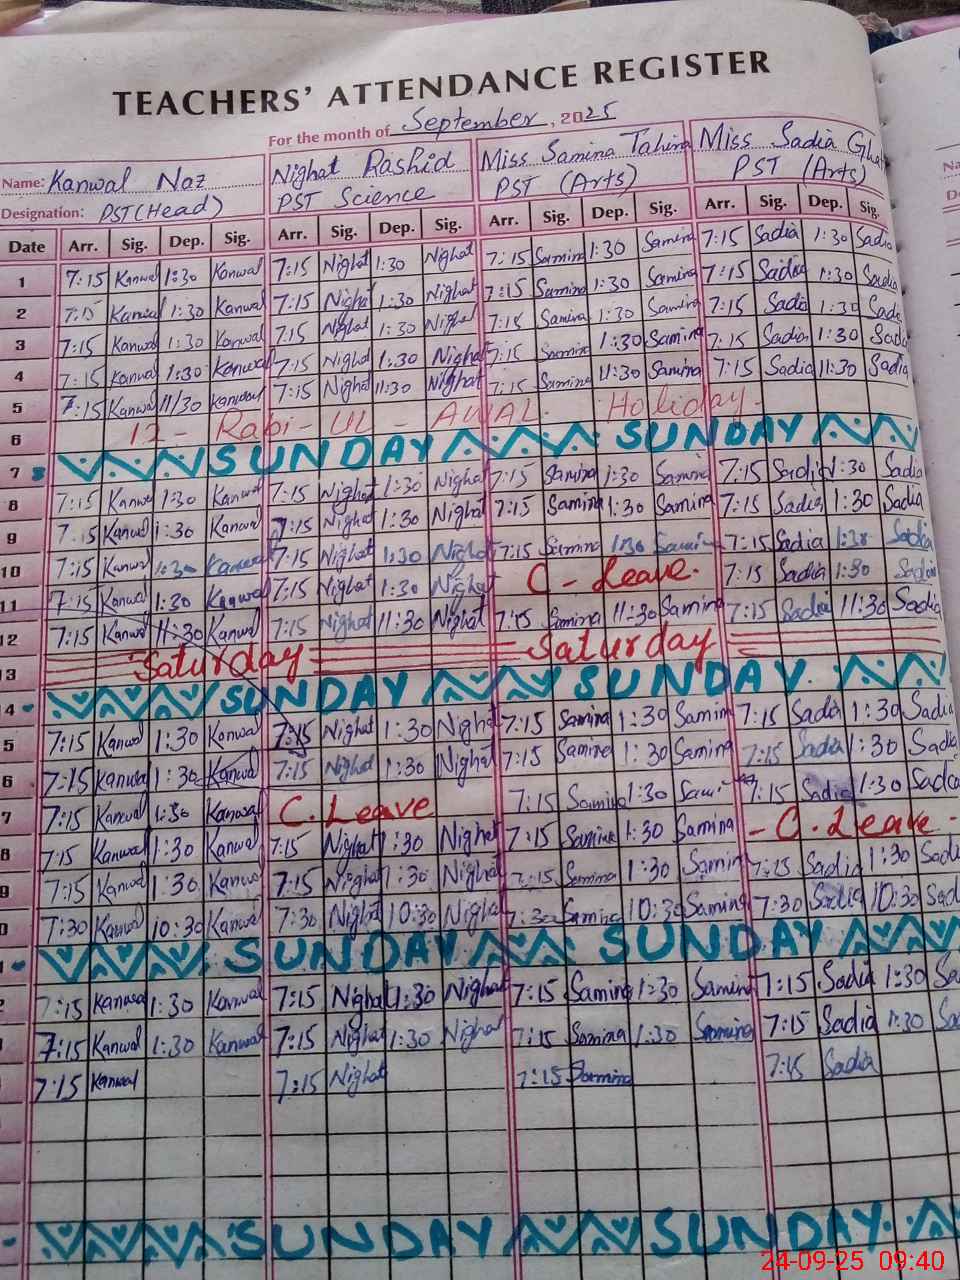 TEACHERS' ATTENDANCE REGISTER
For the month of September, 2025
Name: Kanwal Naz Nighat Rashid Miss Samina Tahira Miss Sadia
Designation: PST (Head) PST Science PST (Arts) PST (Arts)
Date Arr. Sig. Dep. Sig. Arr. Sig. Dep. Sig. Arr. Sig. Dep. Sig. Arr. Sig. Dep. Sig.
1 7:15 Kanwal 1:30 Kanwal 7:15 Nighat 1:30 Nighat 7:15 Samina 1:30 Samina 7:15 Sadia 1:30 Sadia
2 7:15 Kanwal 1:30 Kanwal 7:15 Nighat 1:30 Nighat 7:15 Samina 1:30 Samina 7:15 Sadia 1:30 Sadia
3 7:15 Kanwal 1:30 Kanwal 7:15 Nighat 1:30 Nighat 7:15 Samina 1:30 Samina 7:15 Sadia 1:30 Sadi
4 7:15 Kanwal 1:30 Kanwal 7:15 Nighat 1:30 Nighat 7:15 Samina 1:30 Samina 7:15 Sadia 1:30 Sadia
5 7:15 Kanwal 11:30 Kanwal 7:15 Nighat 11:30 Nighat 7:15 Samina 11:30 Samina 7:15 Sadia 11:30 Sadia
6 12 - Rabi - UL - AWAL. Holiday -
7 SUNDAY SUNDAY
8 7:15 Kanwal 1:30 Kanwal 7:15 Nighat 1:30 Nighat 7:15 Samina 1:30 Samina 7:15 Sadia 1:30 Sadia
9 7:15 Kanwal 1:30 Kanwal 7:15 Nighat 1:30 Nighat 7:15 Samina 1:30 Samina 7:15 Sadia 1:30 Sadia
10 7:15 Kanwal 1:30 Kanwal 7:15 Nighat 1:30 Nighat 7:15 Samina 1:30 Samina 7:15 Sadia 1:30 Sadia
11 7:15 Kanwal 1:30 Kanwal 7:15 Nighat 1:30 Nighat C - Leave. 7:15 Sadia 1:30 Sadia
12 7:15 Kanwal 11:30 Kanwal 7:15 Nighat 11:30 Nighat 7:15 Samina 11:30 Samina 7:15 Sadia 11:30 Sadia
3 Saturday Saturday
4 SUNDAY SUNDAY
5 7:15 Kanwal 1:30 Kanwal 7:15 Nighat 1:30 Nighat 7:15 Samina 1:30 Samin 7:15 Sadia 1:30 Sadia
6 7:15 Kanwal 1:30 Kanwal 7:15 Nighat 1:30 Nighat 7:15 Samina 1:30 Samina 7:15 Sadia 1:30 Sadia
7 7:15 Kanwal 1:30 Kanwal C. Leave 7:15 Samina 1:30 Sami 7:15 Sadia 1:30 Sadia
8 7:15 Kanwal 1:30 Kanwal 7:15 Nighat 1:30 Nighat 7:15 Samina 1:30 Samina - C. Leave -
9 7:15 Kanwal 1:30 Kanwal 7:15 Nighat 1:30 Nighat 7:15 Samina 1:30 Samin 7:15 Sadia 1:30 Sadi
0 7:30 Kanwal 10:30 Kanwal 7:30 Nighat 10:30 Nighat 7:30 Samina 10:30 Samina 7:30 Sadia 10:30 Sad
1 SUNDAY SUNDAY
2 7:15 Kanwal 1:30 Kanwal 7:15 Nighat 1:30 Nighat 7:15 Samina 1:30 Samina 7:15 Sadia 1:30 Sa
7:15 Kanwal 1:30 Kanwal 7:15 Nighat 1:30 Nighat 7:15 Samina 1:30 Samina 7:15 Sadia 1:30 Sad
7:15 Kanwal 7:15 Nighat 7:15 Samina 7:15 Sadia
SUNDAY SUNDAY
24-09-25 09:40